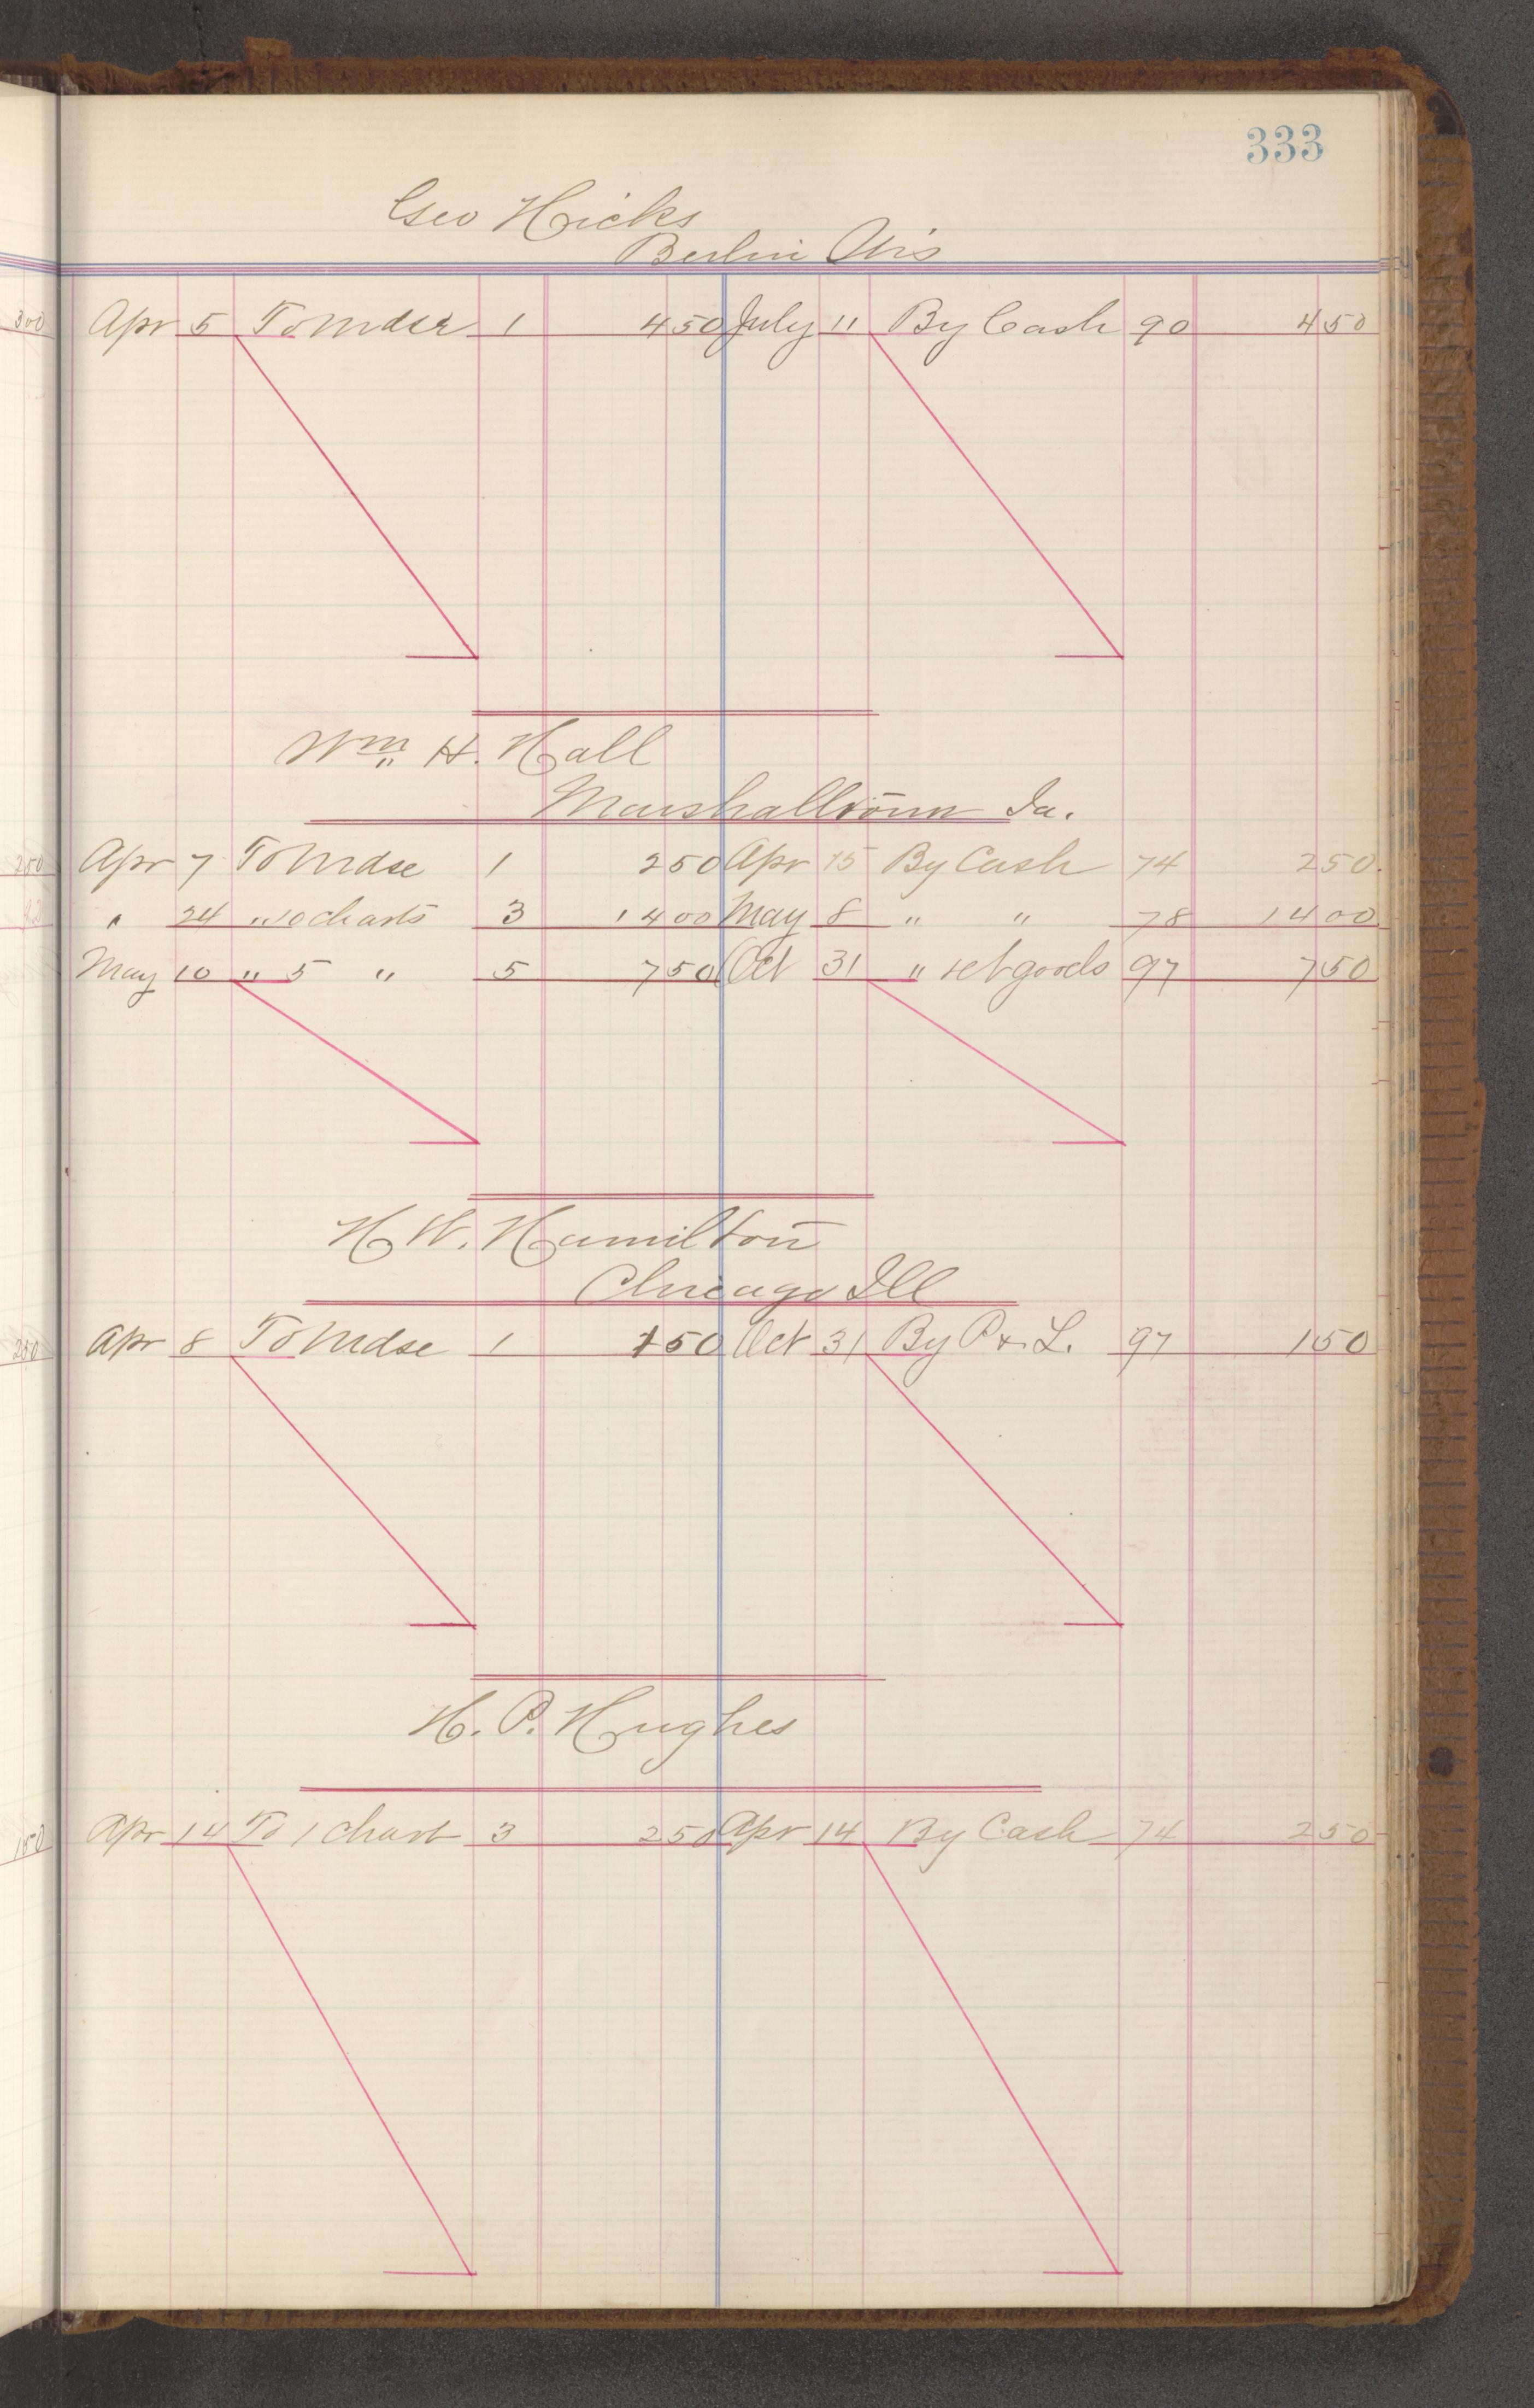 333
Geo Hicks
Berlin Wis
300 Apr 5 To Mdse 1 4 50 July 11 By Cash 90 4 50
Wm H. Hall
Marshalltown Ia.
250 Apr 7 To Mdse 1 2 50 Apr 15 By Cash 74 2 50
" 24 " 10 charts 3 14 00 May 8 " " 78 14 00
May 10 " 5 " 5 7 50 Oct 31 " ret goods 97 7 50
H. W. Hamilton
Chicago Ill
250 Apr 8 To Mdse 1 1 50 Oct 31 By P & L. 97 1 50
H. P. Hughes
150 Apr 14 To 1 chart 3 2 50 Apr 14 By Cash 74 2 50